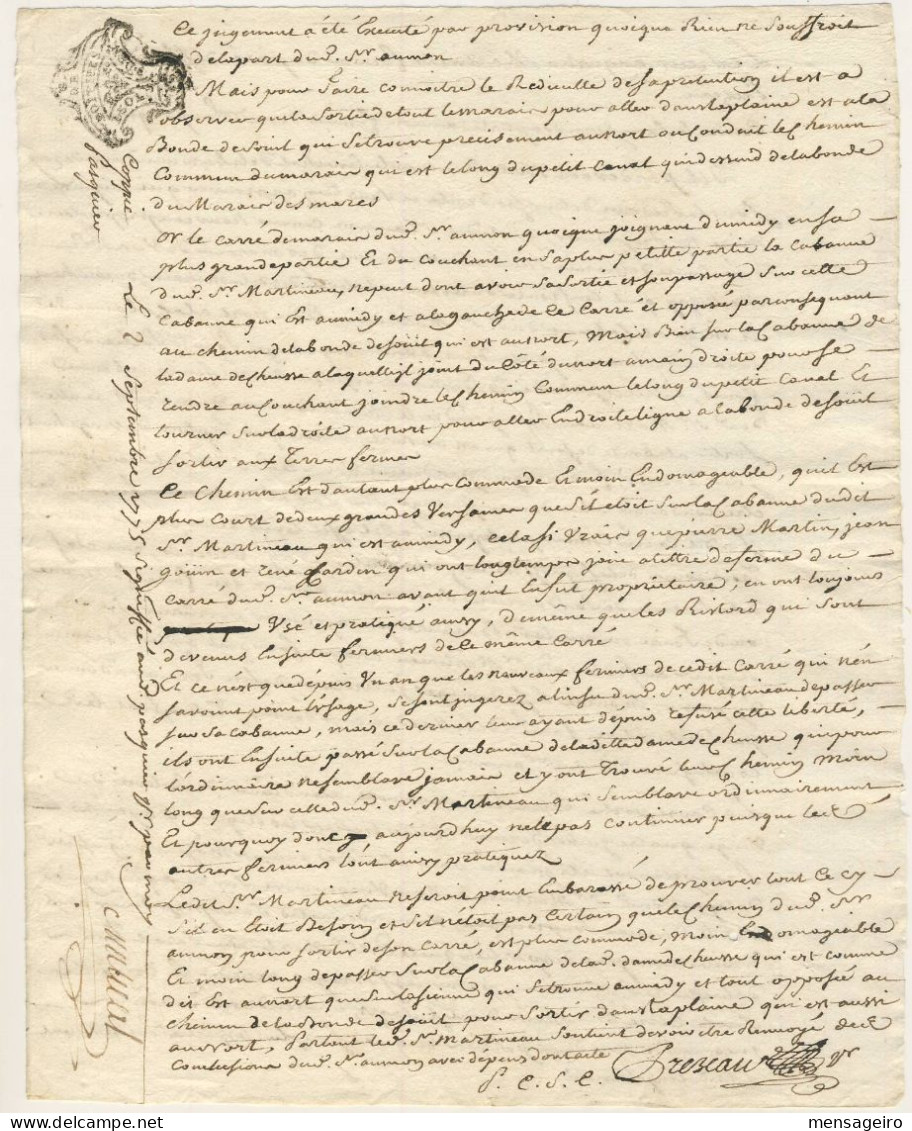 Ce jugement a été Executé par provision quoique Rien ne souffroit
delapart dud. Sr. aumon
Mais pour faire connoitre le Rediculle desapretention il est a
observer quela sortie detout lemarais pour aller danslaplaine est ala
Bonde desouit qui setrouve precisement aunort ou Conduit le Chemin
Commun dumarais qui est lelong dupetit Canal quidessend delabonde
du Marais des mares
Or le carré demarais dud. Sr. aumon quoique joignant dumidy en sa
plus grandepartie Et du couchant en saplus petitte partie la Cabanne
dud. Sr. Martineau, nepeut dont avoir sa sortie et sonpassage sur cette
Cabanne qui Est aumidy et alagauche de ce Carré et opposée parconsequant
au chemin delabonde desoüit qui est aunort, Mais Bien sur la Cabanne de
ladame de Cheusse alaquelle il joint du Côté dunort amain droite pour se
rendre auCouchant joindre le Chemin Commun lelong dupetit Canal Et
tourner sur la droite aunort pour aller Endroite ligne a labonde desoüit
sortir aux Terres fermes
Ce Chemin Est dautant plus Commode Et moin Endomageable, quil Est
plus Court de deux grandes Versaines que sil etoit sur la Cabanne dudit
Sr. Martineau qui est aumidy, cela si Vrais que pierre Martin, jean
et rené Jardin qui ont longtemps joui atittre deferme du
Carré dud. Sr. aumon avant quil Enfut propriétaire, en ont toujours
Usé et pratiqué ainsy, demême que les Ristord qui sont
devenus Ensuite fermiers de Ce même Carré
Et ce n'est quedepuis Un an que les nouveaux fermiers de cedit Carré qui n'en
savoint point L'Usage, se sont ingerez alinsu dud. Sr. Martineau depasser
sur sa cabanne, mais ce dernier leur ayant depuis refusé cette liberté,
ils ont Ensuite passé sur la Cabanne de laditte dame de Cheusse qui pour
l'ordinnaire nesemblave jamais et y ont Trouvé leur Chemin Moin
long que sur celle dud. Sr. Martineau qui Semblave ordinnairement
Et pourquoy dont aujourdhuy ne le pas Continuer puisque les
autres fermiers l'ont ainsy pratiquez
Ledit Sr. Martineau neseroit point Embarassé de prouver tout Ce cy
s'il en Etoit Besoin et s'il n'étoit pas Certain que le Chemin dud. Sr.
aumon pour sortir deson Carré, est plus commode, moin Endomageable
Et moin long de passer sur la Cabanne de lad. dame de Cheusse qui est comme
dit Est aunort que sur la sienne qui se trouve aumidy et tout opposée au
Chemin de la Bonde de soüit pour sortir dans la plaine qui est aussi
aunort, Partant led. Sr. Martineau soutient devoir être Renvoyé des
Conclusions dud. Sr. aumon avec depens dont acte
P. C. S. C.
Coppie
Pasquier
Le 2 Septembre 1775 signiffié aud. pasquier pr. par moy
mensageiro